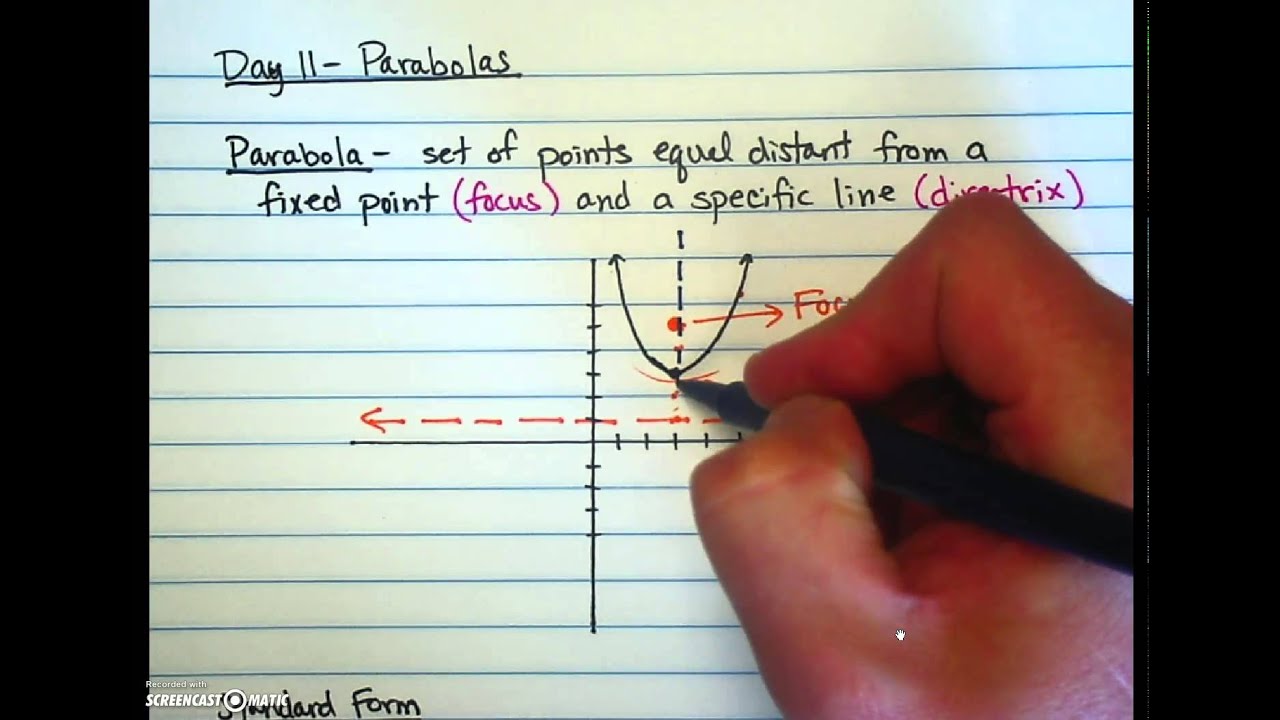 Day 11 - Parabolas
Parabola - set of points equel distant from a
fixed point (focus) and a specific line (directrix)
Foc
Standard Form
Recorded with
SCREENCAST-O-MATIC